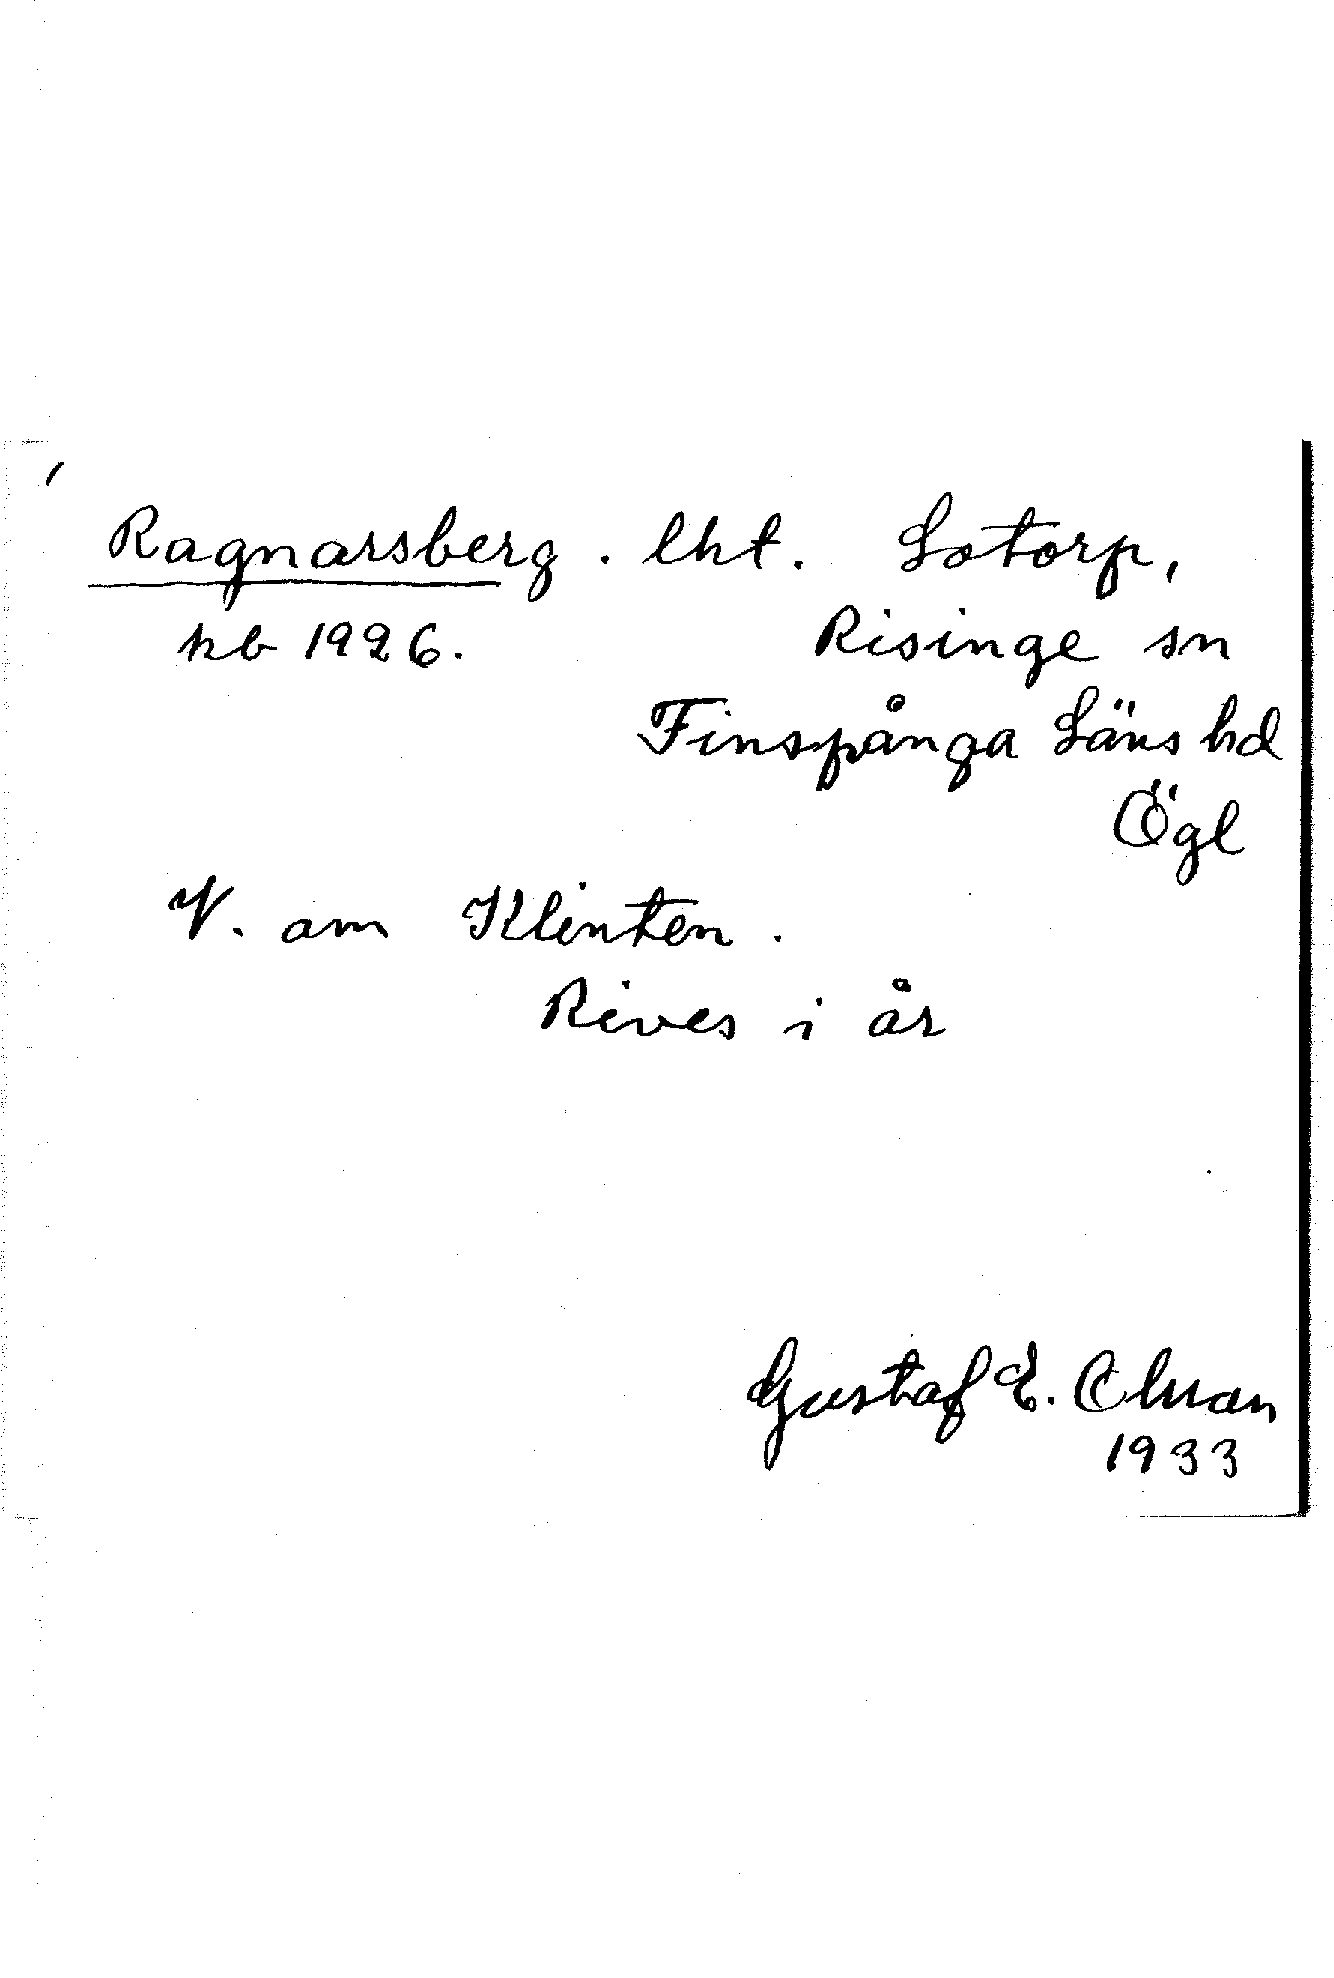 Ragnarsberg. lht. Lotorp,
kb 1926. Risinge sn
Finspånga Läns hd
Ögl
V. om Klinten.
Rives i år
Gustaf E.
1933